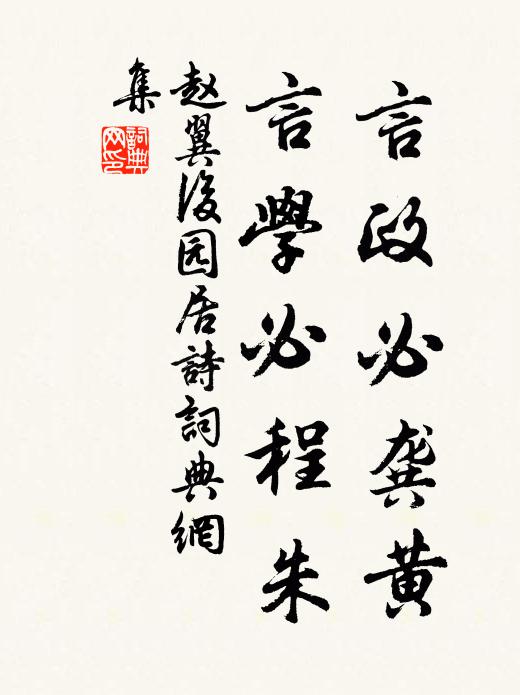 言政必龚黄
言學必程朱
赵翼後园居詩詞典網
集
詞典網印